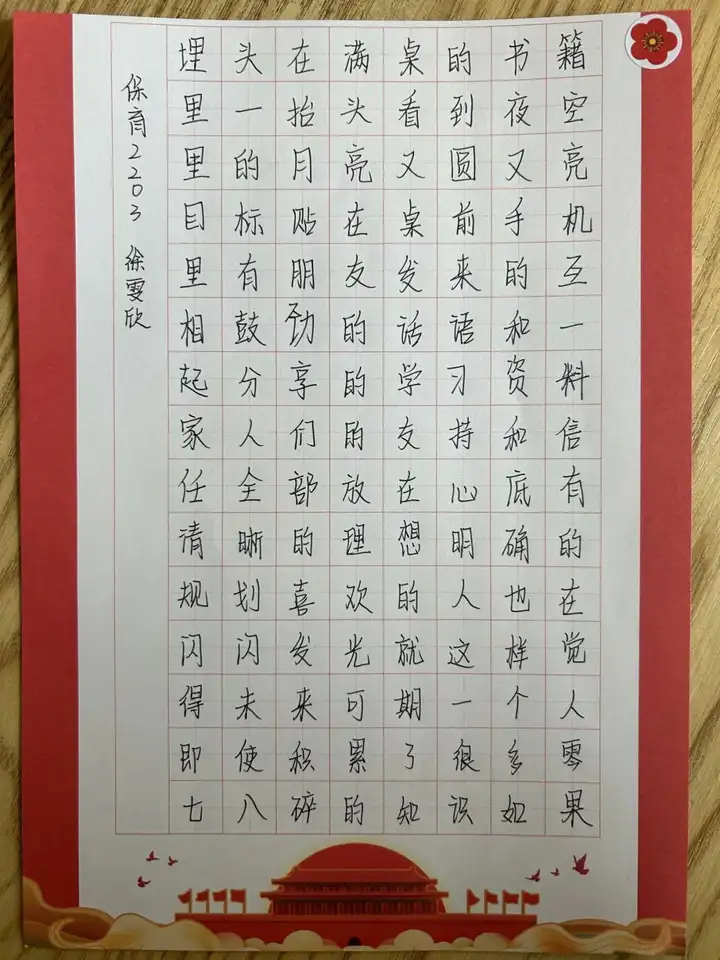 埋头在满桌的书籍
里一抬头看到夜空
里的月亮又圆又亮
目标贴在桌前手机
里有朋友发来的互
相鼓劲的话语和一
起分享的学习资料
家人们的友持和信
任全部放在心底有
清晰的理想明确的
规划喜欢的人也在
闪闪发光就这样觉
得未来可期一个人
即使积累了很多零
七八碎的知识如果
保育2203 徐雯欣